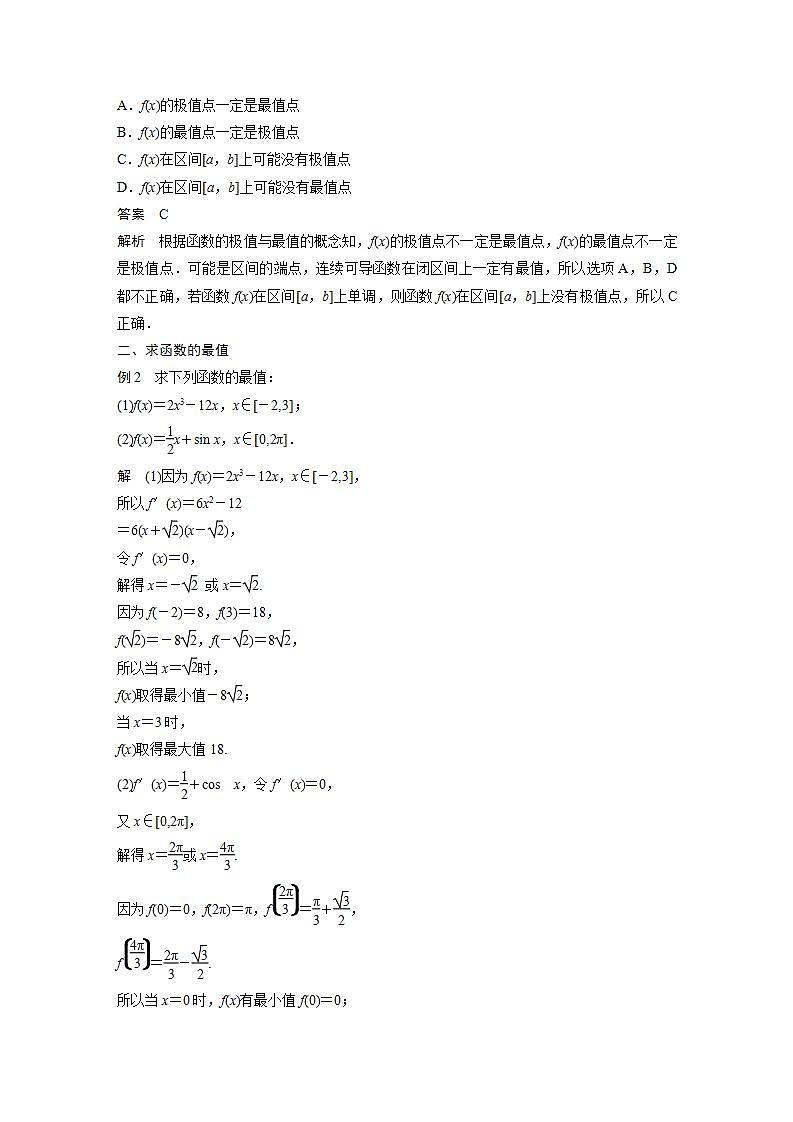 A．f(x)的极值点一定是最值点
B．f(x)的最值点一定是极值点
C．f(x)在区间[a，b]上可能没有极值点
D．f(x)在区间[a，b]上可能没有最值点
答案　C
解析　根据函数的极值与最值的概念知，f(x)的极值点不一定是最值点，f(x)的最值点不一定
是极值点．可能是区间的端点，连续可导函数在闭区间上一定有最值，所以选项A，B，D
都不正确，若函数f(x)在区间[a，b]上单调，则函数f(x)在区间[a，b]上没有极值点，所以C
正确．
二、求函数的最值
例2　求下列函数的最值：
(1)f(x)＝2x³－12x，x∈[－2,3]；
(2)f(x)＝1/2x＋sin x，x∈[0,2π]．
解　(1)因为f(x)＝2x³－12x，x∈[－2,3]，
所以f′(x)＝6x²－12
＝6(x＋√2)(x－√2)，
令f′(x)＝0，
解得x＝－√2 或x＝√2.
因为f(－2)＝8，f(3)＝18，
f(√2)＝－8√2，f(－√2)＝8√2，
所以当x＝√2时，
f(x)取得最小值－8√2；
当x＝3时，
f(x)取得最大值18.
(2)f′(x)＝1/2＋cos　x，令f′(x)＝0，
又x∈[0,2π]，
解得x＝2π/3或x＝4π/3.
因为f(0)＝0，f(2π)＝π，f(2π/3)＝π/3＋√3/2，
f(4π/3)＝2π/3－√3/2.
所以当x＝0时，f(x)有最小值f(0)＝0；